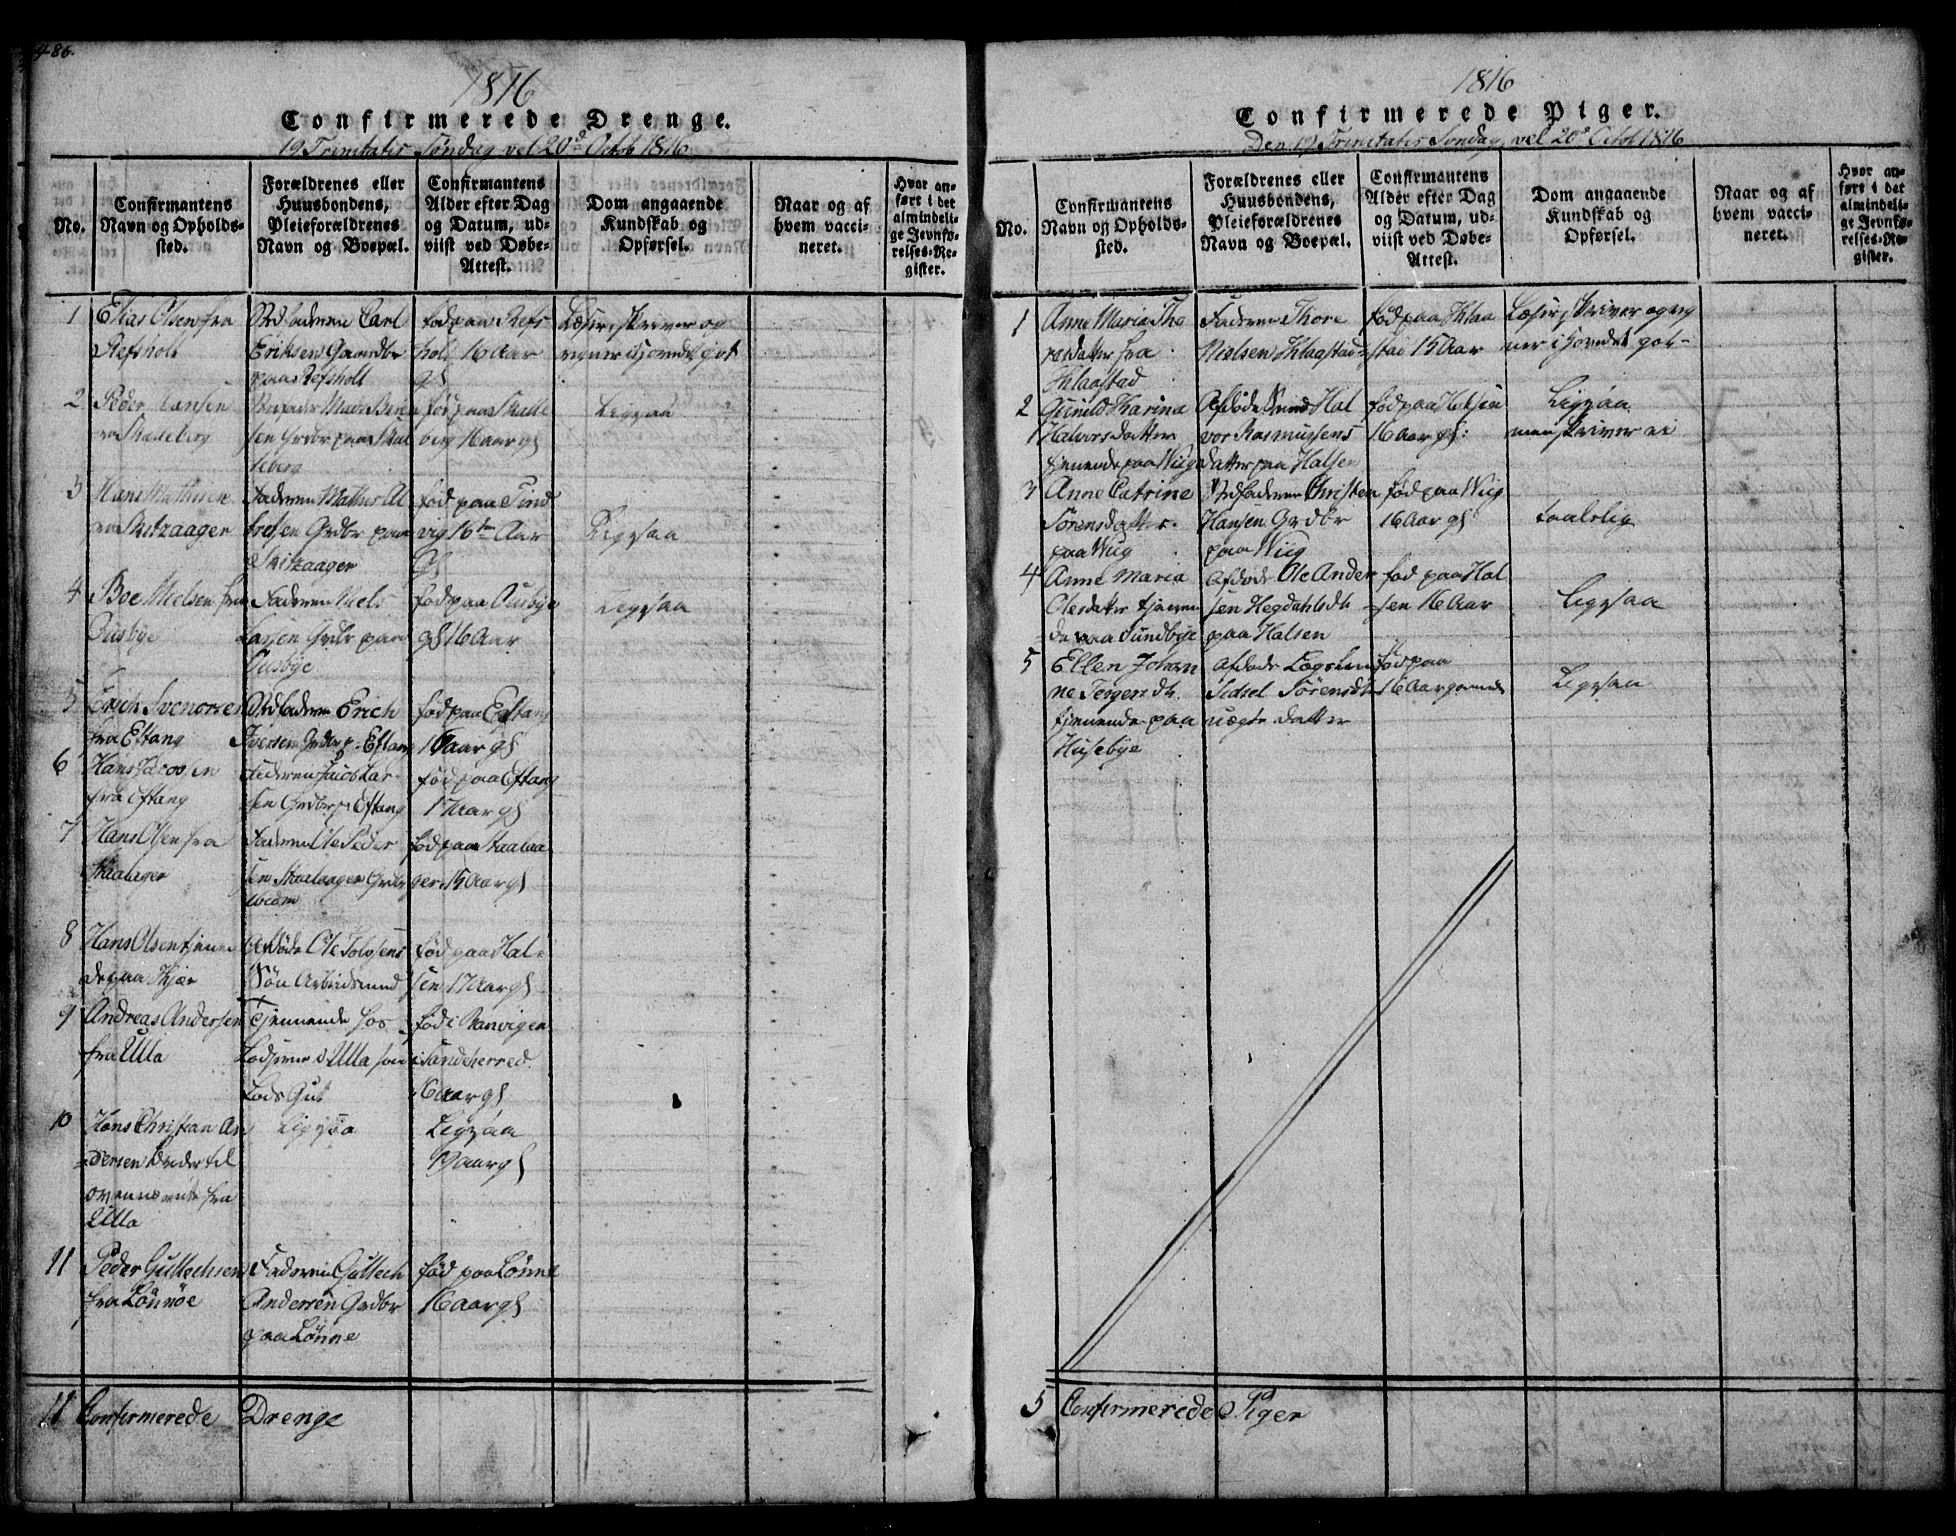 486.
1816
Confirmerede Drenge.
19 Trinitatis Søndag vel 20d Octob 1816
No.
Confirmantens Navn og Opholdssted.
Forældrenes eller Huusbondens, Pleieforældrenes Navn og Boepæl.
Confirmantens Alder efter Dag og Datum, udviist ved Døbe-Attest.
Dom angaaende Kundskab og Opførsel.
Naar og af hvem vaccineret.
Hvor anført i det almindelige Jevnførelses-Register.
1 Elias Olsen fra
Refsholt
Stedfaderen Carl
Eriksen Gaardbr
paa Refsholt
født paa Refs
holt 16 Aar
gl
Læser, skriver og
regner i hovedet got
2 Peder Hansen
Skalleberg
sen Grdbr paa Skal
leberg
fød paa Skalle
berg 16 aar gl
Ligesaa
3 Hans Mathisen
Skitzaager
Faderen Mathis Al
fresen Grdbr paa
Skitzaager
fød paa Sund
vig 16 Aar
gl
Ligesaa
4 Boe Nielsen fra
Ousbye
Faderen Niels
Larsen Grdbr paa
Ousbye
fød paa Ousbye
gl 16 Aar
Ligesaa
5 Erich Svenorsen
fra Eftang
Stedfaderen Erich
Iversen Grdbr p. Eftang
fød paa Eftang
16 aar gl
6 Hans Jacobsen
fra Eftang
Faderen Jacob Lar-
sen Grdbr p Eftang
fød paa Eftang
17 aar gl
7 Hans Olsen fra
Staalager
Faderen Ole Peder
sen Staalaager Grdbr
ibidm
fød paa Staalaa
ger 15 Aar gl
8 Hans Olsen tjenen
de paa Kjær
Afdøde Ole Tolvsens
Søn Arbeidsmand
fød paa Hal-
sen 17 Aar gl
9 Andreas Andersen
fra Ulla
Tjennende hos
Lodserne i Ulla som
Lods Gut
fød i Ranvigen
i Sandeherred
16 aar gl
10 Hans Christian An
dersen Broder til
ovennævnte fra
Ulla
Ligesaa
Ligesaa
aar gl
11 Peder Guttechsen
fra Lønnøe
Faderen Guttech
Andersen Grdbr
paa Lønne
fød paa Lønne
16 aar gl
11 Confirmerede Drenge
1816
Confirmerede Piger.
Den 19 Trinitatis Søndag, vel 20d Octob 1816
No.
Confirmantens Navn og Opholdssted.
Forældrenes eller Huusbondens, Pleieforældrenes Navn og Boepæl.
Confirmantens Alder efter Dag og Datum, udviist ved Døbe-Attest.
Dom angaaende Kundskab og Opførsel.
Naar og af hvem vaccineret.
Hvor anført i det almindelige Jevnførelses-Register.
1 Anne Maria Tho
resdatter fra
Klaastad
Faderen Thore
Nielsen Klaastad
fød paa Klaa
stad 15 Aar
Læser, skriver og reg
ner i hovedet got-
2 Gunild Karina
Halvorsdatter
tjenende paa Wiig
Afdøde Svend Hal
vor Rasmussens
datter paa Halsen
fød paa Halsen
16 Aar gl:
Ligesaa
men skriver ei
3 Anne Catrine
Sørensdatter
paa Wiig
Stedfaderen Christen
Hansen Grdbr
paa Wiig
fød paa Wiig
16 Aar gl
taalelig
4 Anne Maria
Olesdatter tjenen
de paa Sundbye
Afdøde Ole Ander
sen Hegdahls dtr
paa Halsen
fød paa Hal
sen 16 Aar
Ligesaa
5 Ellen Johan
ne Jørgensdtr
tjenende paa
Husebye
Afdøde
Sidsel Sørensdtr
uægte datter
fød paa
16 Aar gammel
Ligesaa
5 Confirmerede Piger